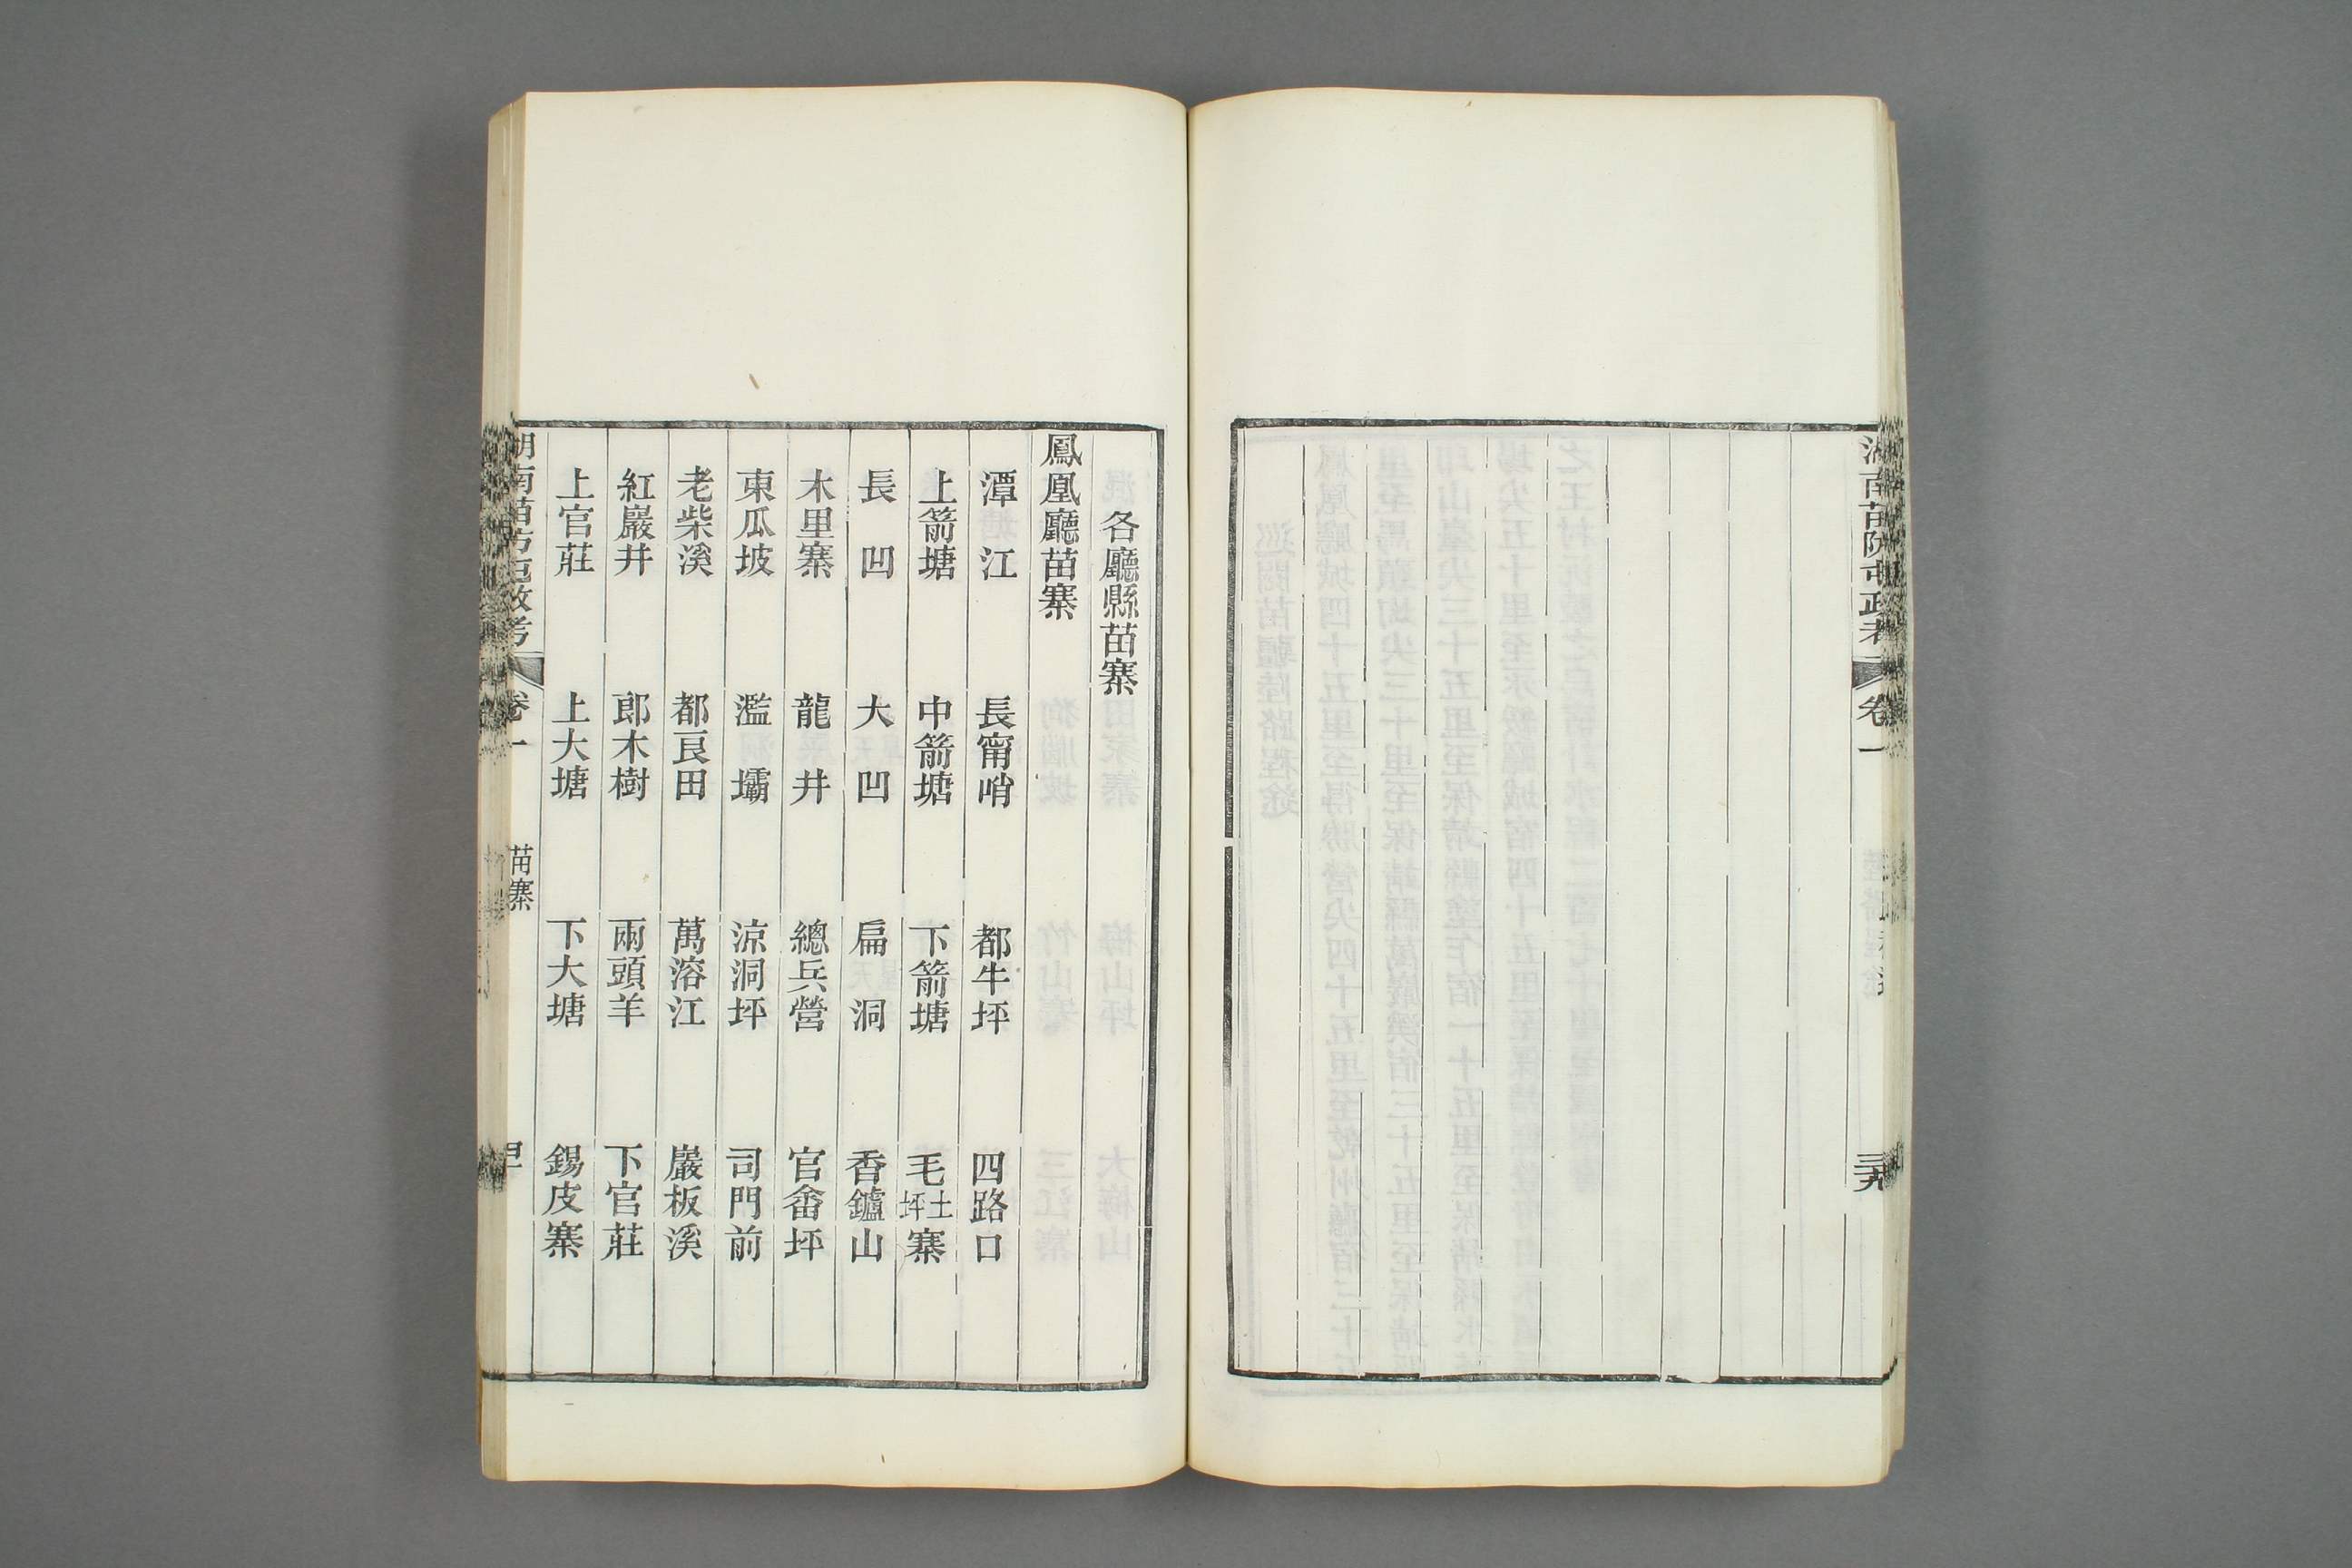 湖南苗防屯政考
卷一
三九
各廳縣苗寨
鳳凰廳苗寨
潭江　長甯哨　都牛坪　四路口
上箭塘　中箭塘　下箭塘　毛土坪寨
長凹　大凹　扁洞　香鑪山
木里寨　龍井　總兵營　官畬坪
東瓜坡　濫壩　涼洞坪　司門前
老柴溪　都良田　萬溶江　巖板溪
紅巖井　郎木樹　兩頭羊　下官莊
上官莊　上大塘　下大塘　錫皮寨
湖南苗防屯政考
卷一
苗寨